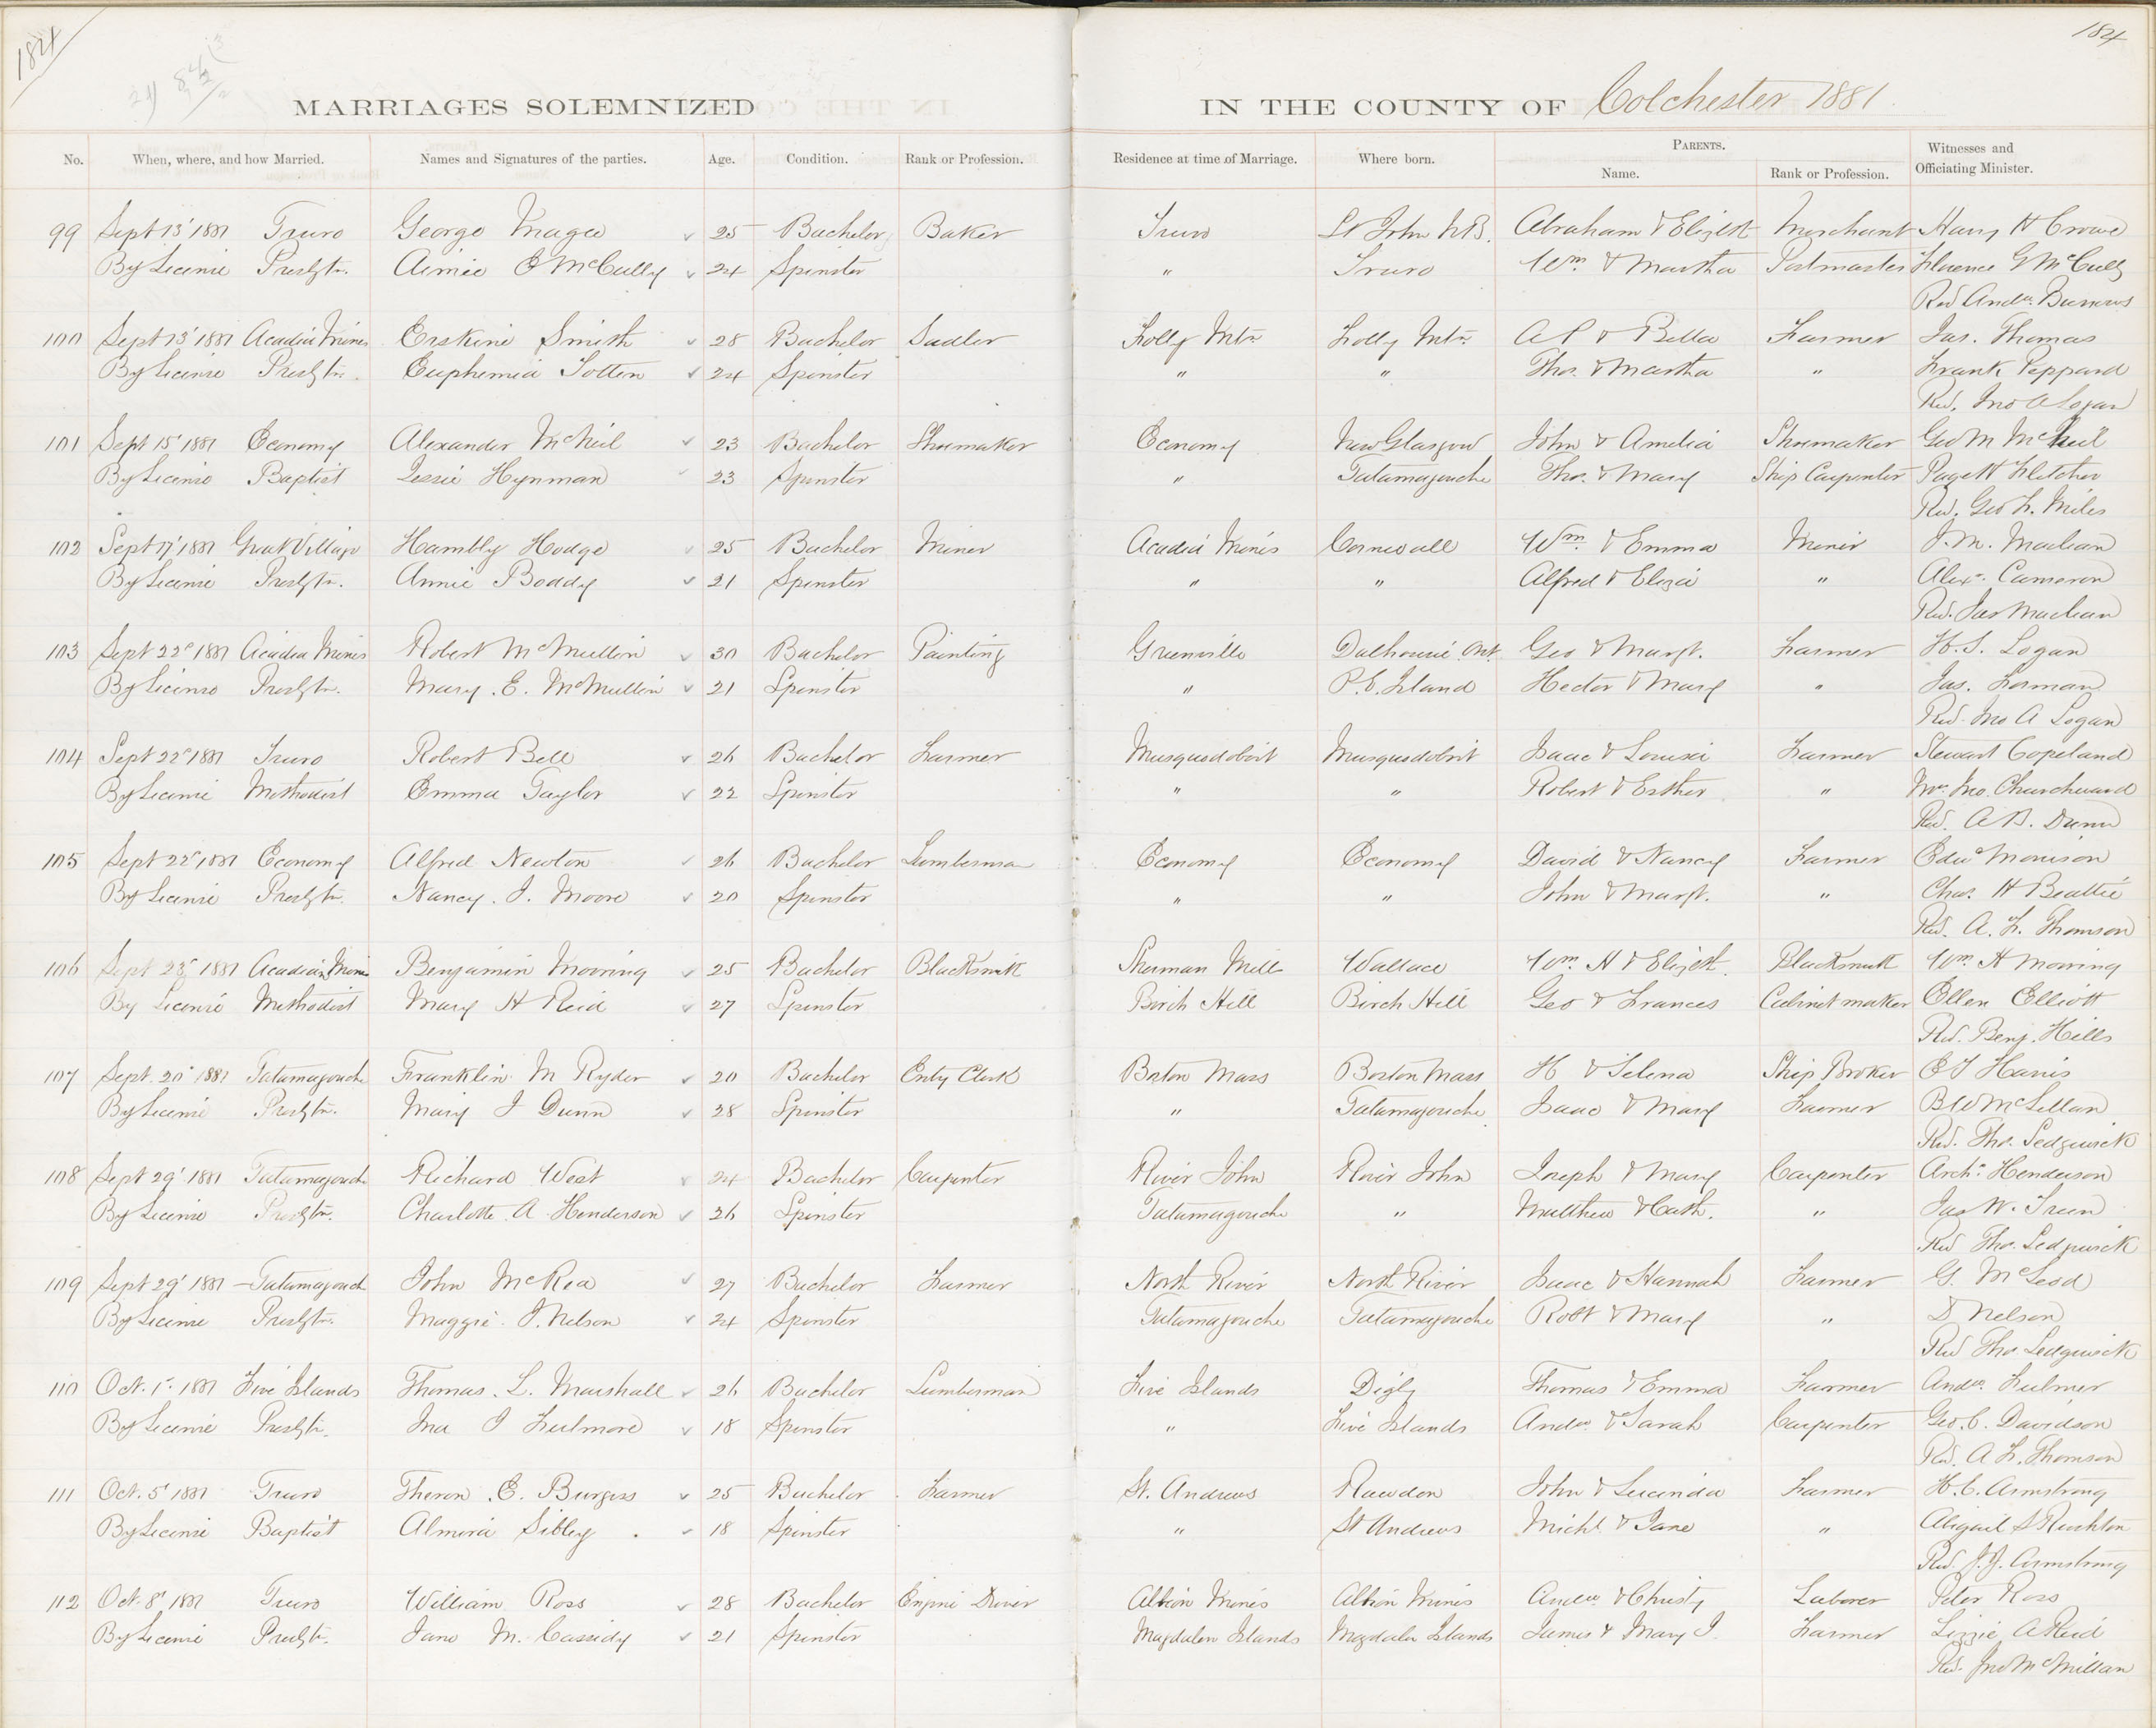 184
184
MARRIAGES SOLEMNIZED IN THE COUNTY OF Colchester 1881
No. When, where, and how Married. Names and Signatures of the parties. Age. Condition. Rank or Profession. Residence at time of Marriage. Where born. PARENTS. Name. Rank or Profession. Witnesses and Officiating Minister.
99 Sept 13' 1881 Truro George Magee 25 Bachelor Baker Truro St John N.B. Abraham & Elizbt Merchant Harry H Crowe
By Licence Presbytn. Aimee E McCully 24 Spinster " Truro Wm. & Martha Postmaster Florence G McCully
Revd Andw. Burrows
100 Sept 13' 1881 Acadia Mines Erskine Smith 28 Bachelor Sadler Folly Mtn Folly Mtn. A P & Bella Farmer Jas. Thomas
By Licence Presbytn. Euphemia Totten 24 Spinster " " Thos. & Martha " Frank Peppard
Revd. Jno A Logan
101 Sept 15' 1881 Economy Alexander McNeil 23 Bachelor Shoemaker Economy New Glasgow John & Amelia Shoemaker Geo M McNeil
By Licence Baptist Lessie Hynman 23 Spinster " Tatamagouche Thos. & Mary Ship Carpenter Page H Fletcher
Rev. Geo F. Miles
102 Sept 17' 1881 Great Village Hambly Hodge 25 Bachelor Miner Acadia Mines Cornwall Wm. & Emma Miner J. M. Maclean
By Licence Presbytn. Annie Boddy 21 Spinster " " Alfred & Eliza " Alexr. Cameron
Revd. Jas Maclean
103 Sept 22d 1881 Acadia Mines Robert McMullin 30 Bachelor Painting Greenville Dalhousie Ont. Geo & Margt. Farmer H. S. Logan
By Licence Presbytn. Mary. E. McMullin 21 Spinster " P. E. Island Hector & Mary " Jas. Forman
Revd. Jno A Logan
104 Sept 22d 1881 Truro Robert Bell 26 Bachelor Farmer Musquodoboit Musquodoboit Isaac & Louisa Farmer Stewart Copeland
By Licence Methodist Emma Taylor 22 Spinster " " Robert & Esther " Mrs. Jno. Churchward
Revd. A B. Dunn
105 Sept 22d 1881 Economy Alfred Newton 26 Bachelor Lumberman Economy Economy David & Nancy Farmer Edwd Morrison
By Licence Presbytn. Nancy. J. Moore 20 Spinster " " John & Margt. " Chas. H Beattie
Revd. A. F. Thomson
106 Sept 28' 1881 Acadia Mines Benjamin Mooring 25 Bachelor Blacksmith Sherman Mill Wallace Wm. H & Elizbt. Blacksmith Wm. H Mooring
By Licence Methodist Mary H Reid 27 Spinster Birch Hill Birch Hill Geo & Frances Cabinet maker Ellen Elliott
Revd. Benj. Hills
107 Sept. 20' 1881 Tatamagouche Franklin M Ryder 20 Bachelor Entry Clerk Boston Mass Boston Mass H & Selena Ship Broker E T Harris
By Licence Presbytn. Mary J Dunn 28 Spinster " Tatamagouche Isaac & Mary Farmer B W McLellan
Revd. Thos. Sedgwick
108 Sept 29' 1881 Tatamagouche Richard West 24 Bachelor Carpenter River John River John Joseph & Mary Carpenter Archd. Henderson
By Licence Presbytn. Charlotte A Henderson 26 Spinster Tatamagouche " Matthew & Cath. " Jas W. Treen
Revd Thos. Sedgwick
109 Sept 29' 1881 Tatamagouch John McRea 27 Bachelor Farmer North River North River Isaac & Hannah Farmer G. McLeod
By Licence Presbytn. Maggie J. Nelson 24 Spinster Tatamagouche Tatamagouche Robt & Mary " D Nelson
Revd Thos Sedgwick
110 Oct. 1st. 1881 Five Islands Thomas. L. Marshall 26 Bachelor Lumberman Five Islands Digby Thomas & Emma Farmer Andw. Fulmer
By Licence Presbytn. Ina J Fulmore 18 Spinster " Five Islands Andw. & Sarah Carpenter Geo. C. Davidson
Rev. A F. Thomson
111 Oct. 5' 1881 Truro Theron. E. Burgess 25 Bachelor Farmer St. Andrews Rawdon John & Lucinda Farmer H. C. Armstrong
By Licence Baptist Almira Sibley 18 Spinster " St Andrews Michl. & Jane " Abigail S Rushton
Revd. J. J. Armstrong
112 Oct. 8' 1881 Truro William Ross 28 Bachelor Engine Driver Albion Mines Albion Mines Andw & Christy Laborer Peter Ross
By Licence Presbytn. Jane M. Cassidy 21 Spinster Magdalen Islands Magdalen Islands James & Mary J. Farmer Lizzie A Reid
Revd. Jno McMillan